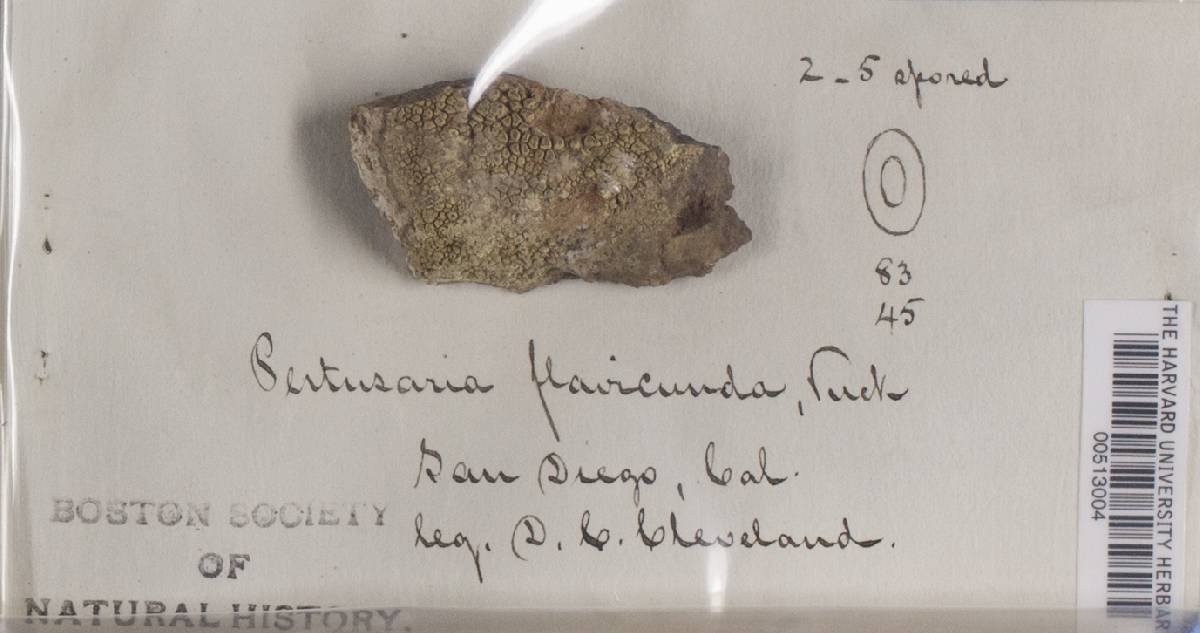 2-5 spored
83
45
Pertusaria flavicunda, Tuck
San Diego, Cal.
leg. D. C. Cleveland.
BOSTON SOCIETY
OF
NATURAL HISTORY.
THE HARVARD UNIVERSITY HERBAR
00513004